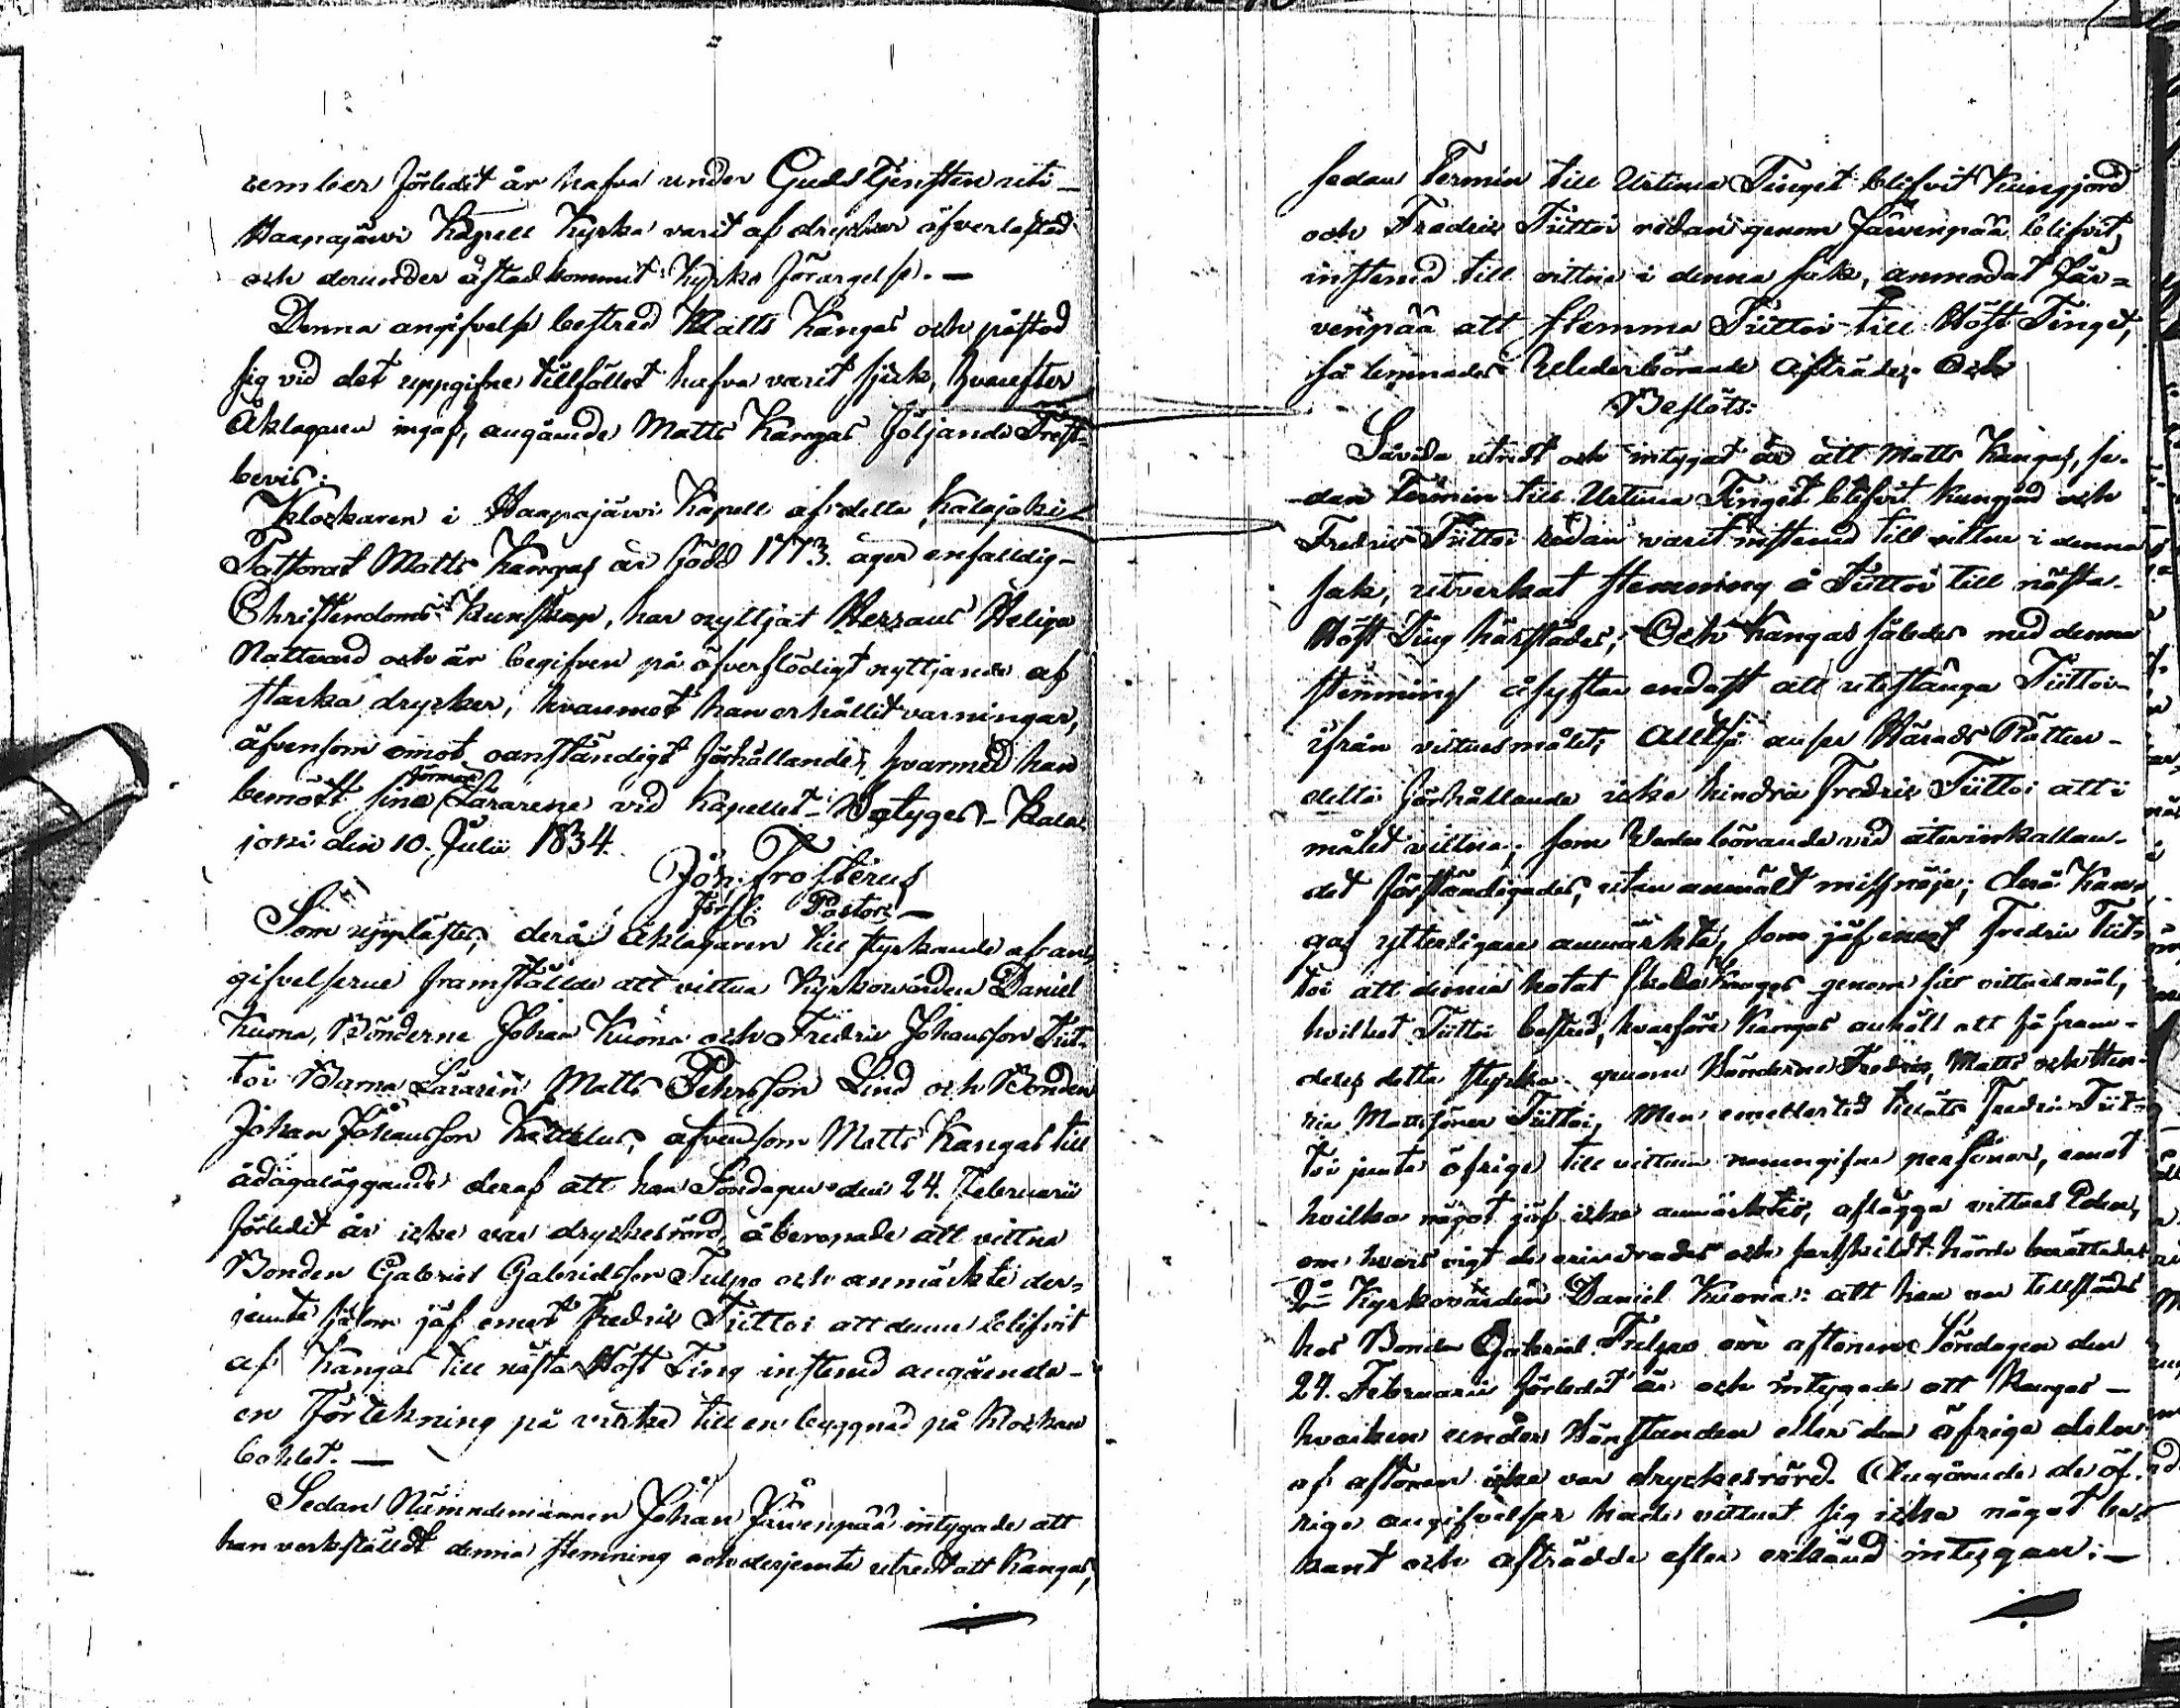 cember förledit år hafva under Gudstjensten uti
Haapajärvi Kapell Kyrka varit af drycker öfverlastad
och derunder åstadkommit Kyrko förargelse. —
Denna angifvelse bestred Matts Kangas och påstod
sig vid det uppgifne tillfället hafva varit sjuk, hvarefter
Åklagaren ingaf, angående Matts Kangas följande Präst=
bevis:
Klockaren i Haapajärvi Kapell af detta Kalajoki
Pastorat Matts Kangas är född 1773. äger enfalldig
Christendoms kunskap, har nyttjat Herrans Heliga
Nattvard och är begifven på öfverflödigt nyttjande af
starka drycker, hvaremot han erhållit varningar,
äfvensom emot oanständigt förhållande, hvarmed han
bemött sina förmän Lärarene vid Kapellet. Betyges. Kala
joki den 10. Julii 1834.
Joh: Frosterus
Pastor. —
Som upplästes; derå Åklagaren till styrkande af an=
gifvelserne framställde att vittna Kyrkovärden Daniel
Kuona, Bönderne Johan Kuona och Fredric Johansson Tiit=
toi Barna Läraren Matts Pehrsson Lind och Bonden
Johan Johansson Kattelus, äfvensom Matts Kangas till
ådagaläggande deraf att han Söndagen den 24. Februarii
förledit år icke var dryckesrörd, åberopade att vittna
Bonden Gabriel Gabrielsson Tulpo och anmärkte der=
jemte såsom jäf emot Fredric Tiittoi att denne blifvit
af Kangas till nästa Höst Ting instemd angående
en förtekning på virke till en byggnad på Klockare
bohlet. —
Sedan Nämndemannen Johan Järvenpää intygade att
han verkställdt denna stemning och derjemte utredt att Kangas,
sedan Termin till Urtima Tinget blifvit kungjord
och Fredric Tiittoi redan genom Järvenpää blifvit
instemd till vittne i denna sak, anmodat Jär=
venpää att stemma Tiittoi till Höst Tinget,
så lemnades Vederbörande afträde; Och
Beslöts:
Såvida utredt och intygat är att Matts Kangas, se=
dan Termin till Urtima Tinget blifvit kungjord och
Fredric Tiittoi redan varit instemd till vittne i denna
sak, utverkat stemning å Tiittoi till nästa
Höst Ting härstädes; Och Kangas således med denna
stemning åsyftar endast att utestänga Tiittoi
ifrån vittnesmålet; Alltså anser Härads Rätten
detta förhållande icke hindra Fredric Tiittoi att i
målet vittna; som Vederbörande vid återinkallan=
det förständigades, utan anmält missnöje; derå Kan=
gas ytterligare anmärkte, som jäf emot Fredric Tiit=
toi att denna hotat skada Kangas genom sitt vittnesmål,
hvilket Tiittoi bestred, hvarföre Kangas anhöll att få fram=
deles detta styrka genom Bönderne Fredric, Matts och Hen=
ric Mattssöner Tiittoi, Men emellertid tilläts Fredric Tiit=
toi jemte öfrige till vittnen namngifne personer, emot
hvilka något jäf icke anmärktes, aflägga vittnes Eden,
om hvars vigt de erinrades och särskildt hörde berättade:
1º Kyrkovärden Daniel Kuona: att han var tillstädes
hos Bonden Gabriel Tulpo om aftonen Söndagen den
24. Februarii förledit år och intygade att Kangas —
hvarken under bönstunden eller den öfrige delen
af aftonen icke var dryckesrörd. Angående de öf=
rige angifvelser hade vittnet sig icke något be=
kant och afträdde efter erkänd intygan: —